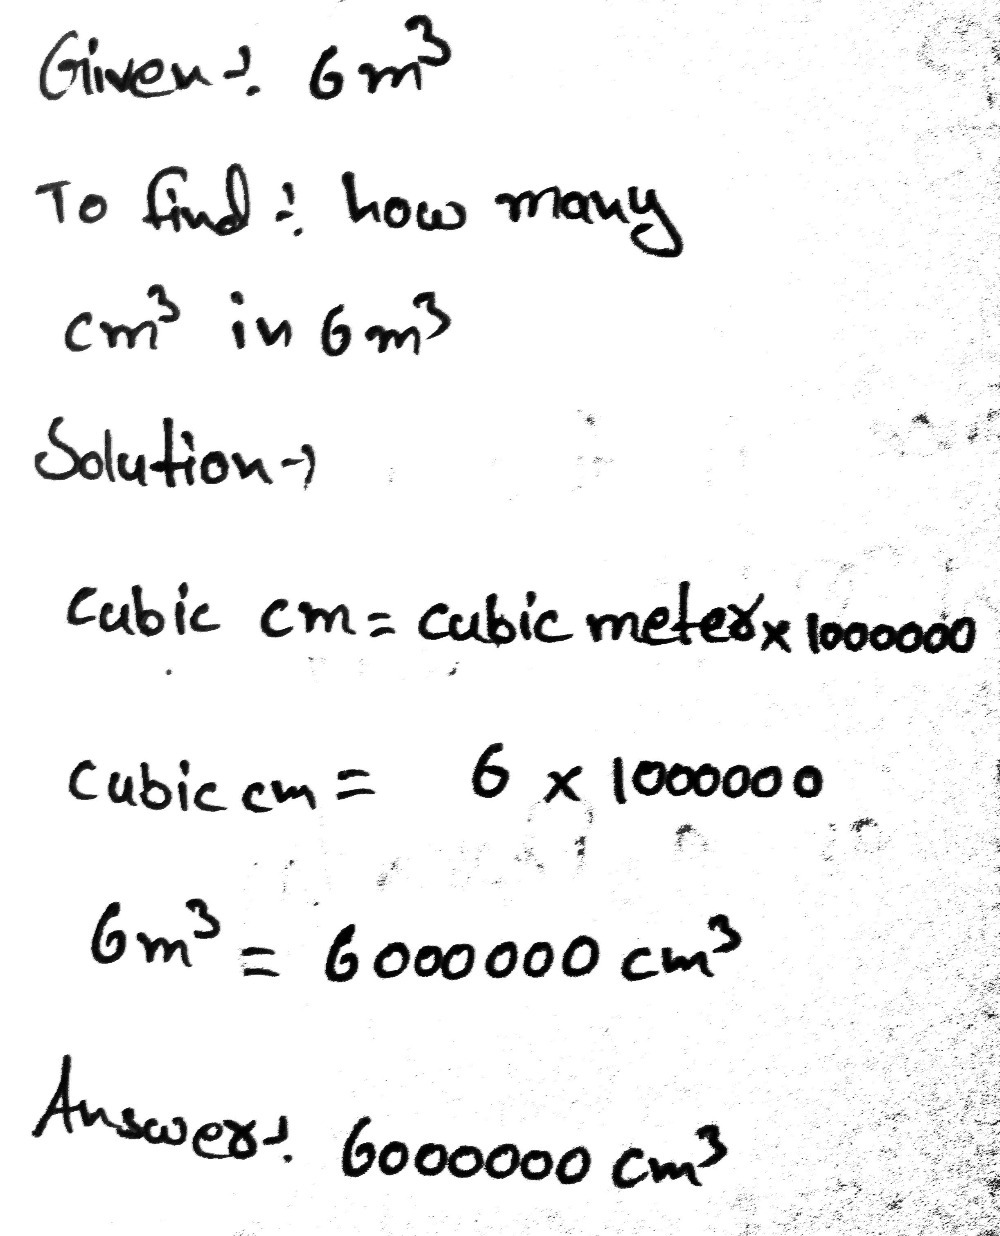 Given :- 6m³
To find :- how many
cm³ in 6m³
Solution →
Cubic cm = cubic meter x 1000000
Cubic cm = 6 x 1000000
6m³ = 6000000 cm³
Answer :- 6000000 cm³